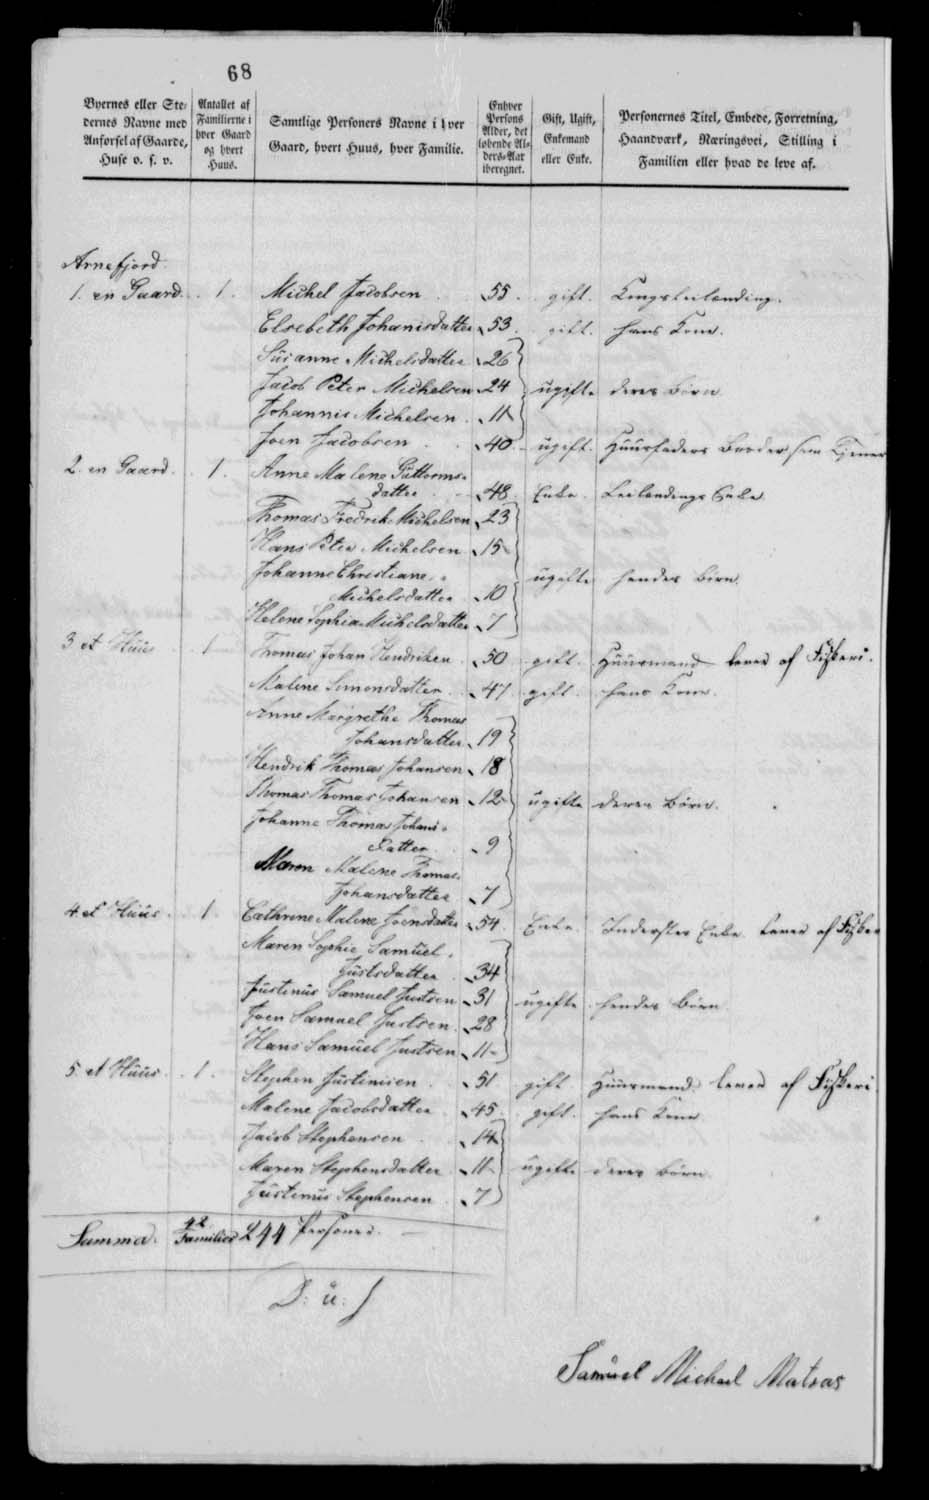 68
Byernes eller Stedernes Navne med Anførsel af Gaarde, Huse o. s. v.
Antallet af Familierne i hver Gaard og hvert Huus.
Samtlige Personers Navne i hver Gaard, hvert Huus, hver Familie.
Enhver Persons Alder, det løbende Alders-Aar iberegnet.
Gift, Ugift, Enkemand eller Enke.
Personernes Titel, Embede, Forretning, Haandværk, Næringsvei, Stilling i Familien eller hvad de leve af.
Arnefjord.
1. en Gaard. 1. Michel Jacobsen 55. gift. Kongsleilending.
Elsebeth Johanisdatter 53. gift. hans Kone.
Susanne Michelsdatter 26
Jacob Peter Michelsen 24 ugifte deres Børn
Johannis Michelsen 11
Joen Jacobsen 40. ugift. Huusfaders Broder som Tjener
2. en Gaard. 1. Anne Malene Guttorms-
datter 48 Enke. Leilendings Enke
Thomas Fredrik Michelsen 23
Hans Peter Michelsen 15
Johanne Christiane ugifte hendes børn.
Michelsdatter 10
Helene Sophia Michelsdatter 7
3 et Huus 1 Thomas Johan Hendriksen 50 gift. Huusmand lever af Fiskeri.
Malene Simonsdatter 47 gift. hans Kone.
Anne Margrethe Thomas
Johansdatter 19
Hendrik Thomas Johansen 18
Thomas Thomas Johansen 12 ugifte deres Børn.
Johanne Thomas Johans-
datter 9
Maren Malene Thomas
Johansdatter 7
4 et Huus. 1 Cathrine Malene Joensdatter 54. Enke. Inderstes Enke lever af Fisker
Maren Sophie Samuel
Justsdatter 34
Justinus Samuel Justsen 31 ugifte hendes Børn
Joen Samuel Justsen 28
Hans Samuel Justsen 11
5. et Huus. 1. Stephen Justinisen 51 gift. Huusmand lever af Fiskeri
Malene Jacobsdatter 45. gift. hans Kone
Jacob Stephensen 14
Maren Stephensdatter 11 ugifte deres børn
Justinus Stephensen 7
Summa. 42 Familier 244 Personer.
D: u: S
Samuel Michael Matras